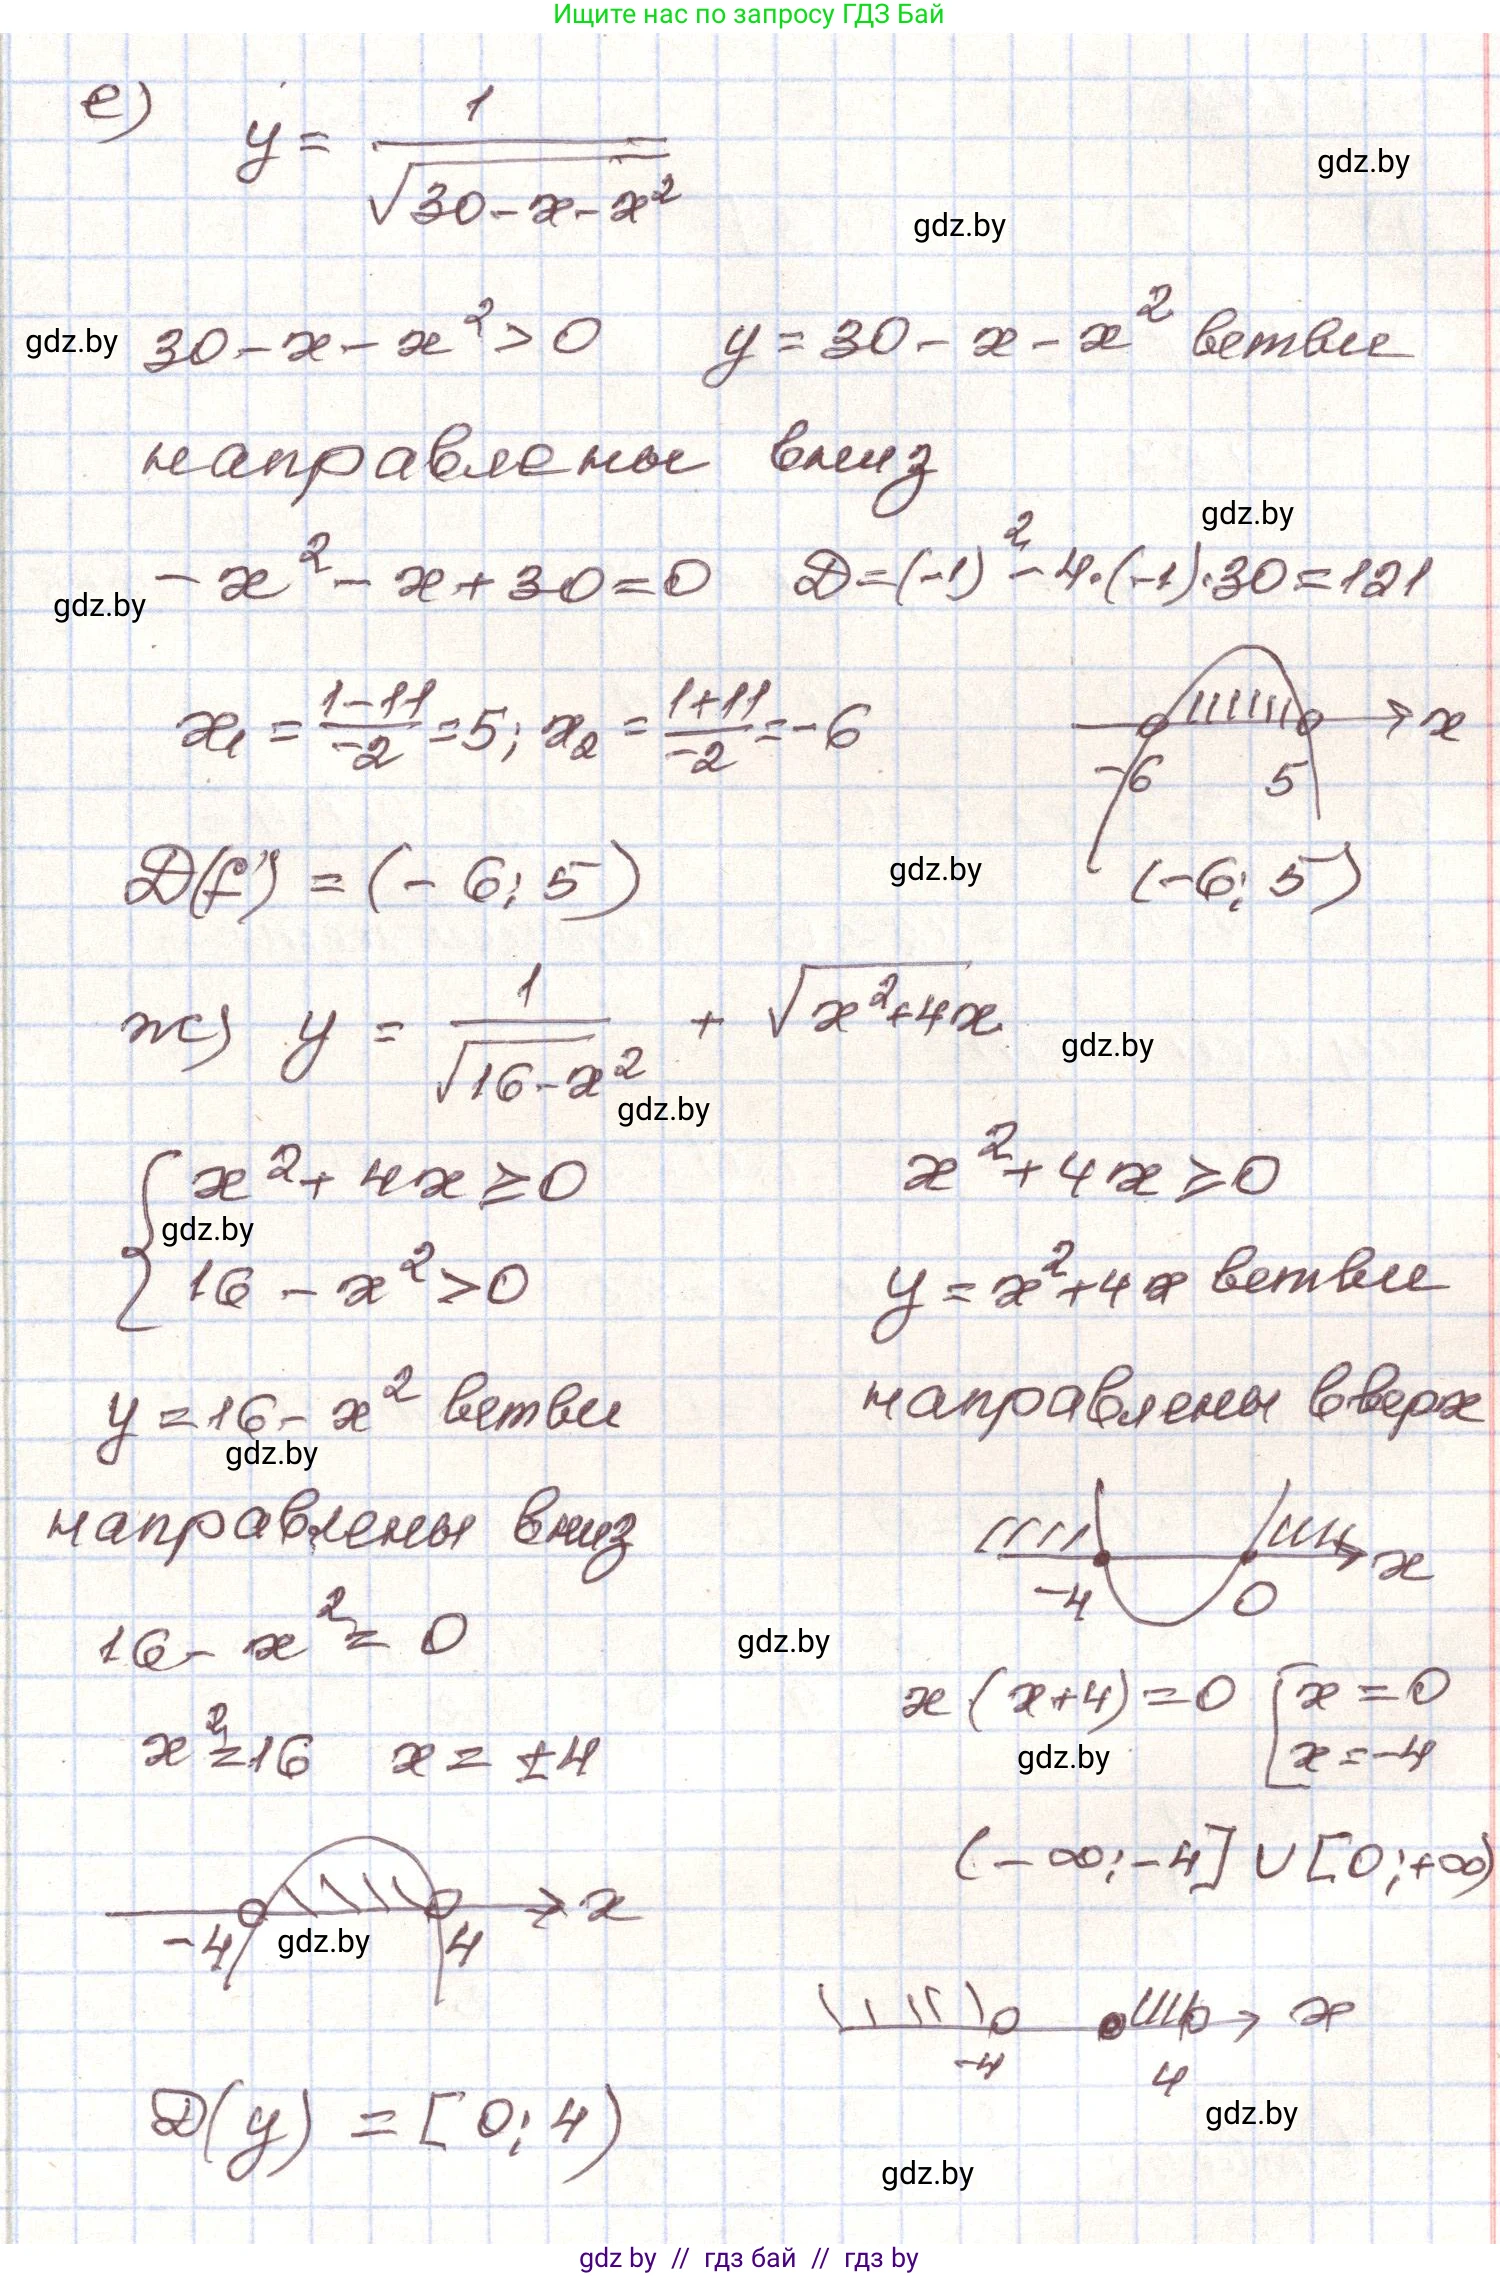 Ищите нас по запросу ГДЗ Бай
е) y = 1/√(30-x-x²)
gdz.by
gdz.by
gdz.by 30-x-x²>0 y=30-x-x² ветви
направлены вниз
gdz.by
-x²-x+30=0 D=(-1)²-4·(-1)·30=121
gdz.by
x₁=(1-11)/-2=5; x₂=(1+11)/-2=-6 x
-6 5
D(f) = (-6; 5) gdz.by (-6; 5)
ж) y = 1/√(16-x²) + √(x²+4x)
gdz.by
gdz.by
{x²+4x≥0 x²+4x≥0
gdz.by
16-x²>0 y=x²+4x ветви
y=16-x² ветви направлены вверх
gdz.by
направлены вниз x
-4 0
16-x²=0 gdz.by
x·(x+4)=0 [x=0
x²=16 x=±4 gdz.by x=-4
(-∞;-4]∪[0;+∞)
x
-4 gdz.by 4
x
-4 4
D(y) = [0; 4) gdz.by
gdz.by
gdz by // гдз бай // гдз by